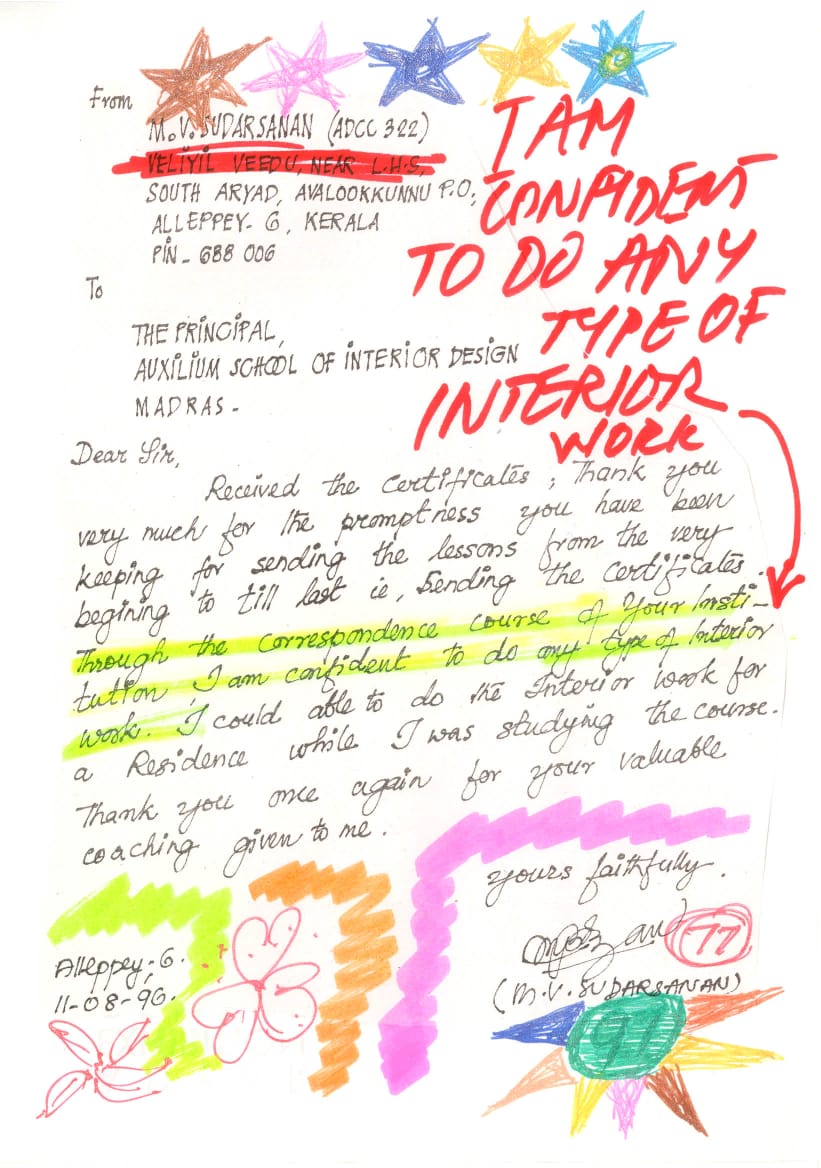 From
M.V. SUDARSANAN (ADCC 322)
VELIYIL VEEDU, NEAR L.H.S,
SOUTH ARYAD, AVALOOKKUNNU P.O,
ALLEPPEY- 6, KERALA
PIN - 688 006
I AM
CONFIDENT
TO DO ANY
TYPE OF
INTERIOR
WORK
To
THE PRINCIPAL,
AUXILIUM SCHOOL OF INTERIOR DESIGN
MADRAS -
Dear Sir,
Received the certificates ; Thank you
very much for the promptness you have been
keeping for sending the lessons from the very
begining to till last ie, Sending the certificates.
Through the correspondence course of Your Insti-
tution, I am confident to do any type of Interior
work. I could able to do the Interior work for
a Residence while I was studying the course.
Thank you once again for your valuable
coaching given to me.
yours faithfully.
77
Alleppey-6.
11-08-96.
(M.V. SUDARSANAN)
91